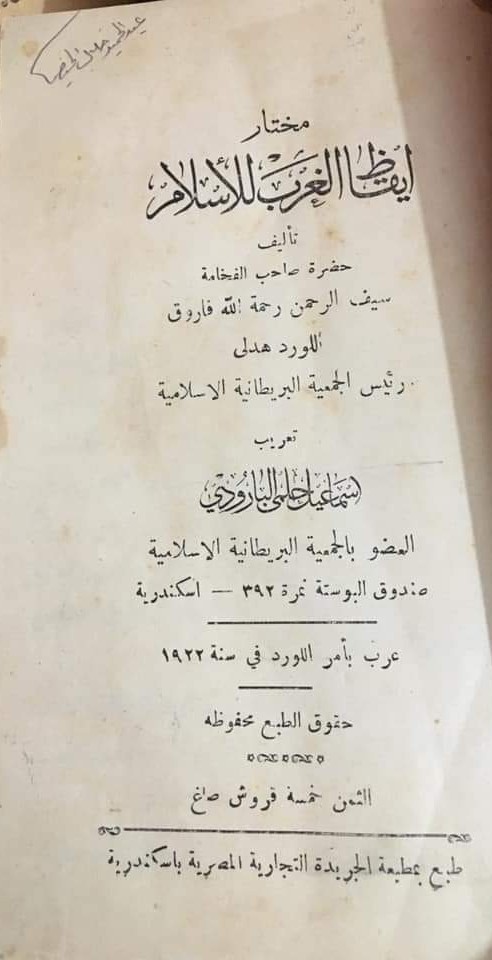 مختار
ايقاظ الغرب للأسلام
تأليف
حضرة صاحب الفخامة
سيف الرحمن رحمة الله فاروق
اللورد هدلى
رئيس الجمعية البريطانية الاسلامية
تعريب
اسماعيل حلمى البارودي
العضو بالجمعية البريطانية الاسلامية
صندوق البوستة نمرة ٣٩٢ — اسكندرية
عرب بأمر اللورد في سنة ١٩٢٢
حقوق الطبع محفوظه
الثمن خمسة قروش صاغ
طبع بمطبعة الجريدة التجارية المصرية باسكندرية